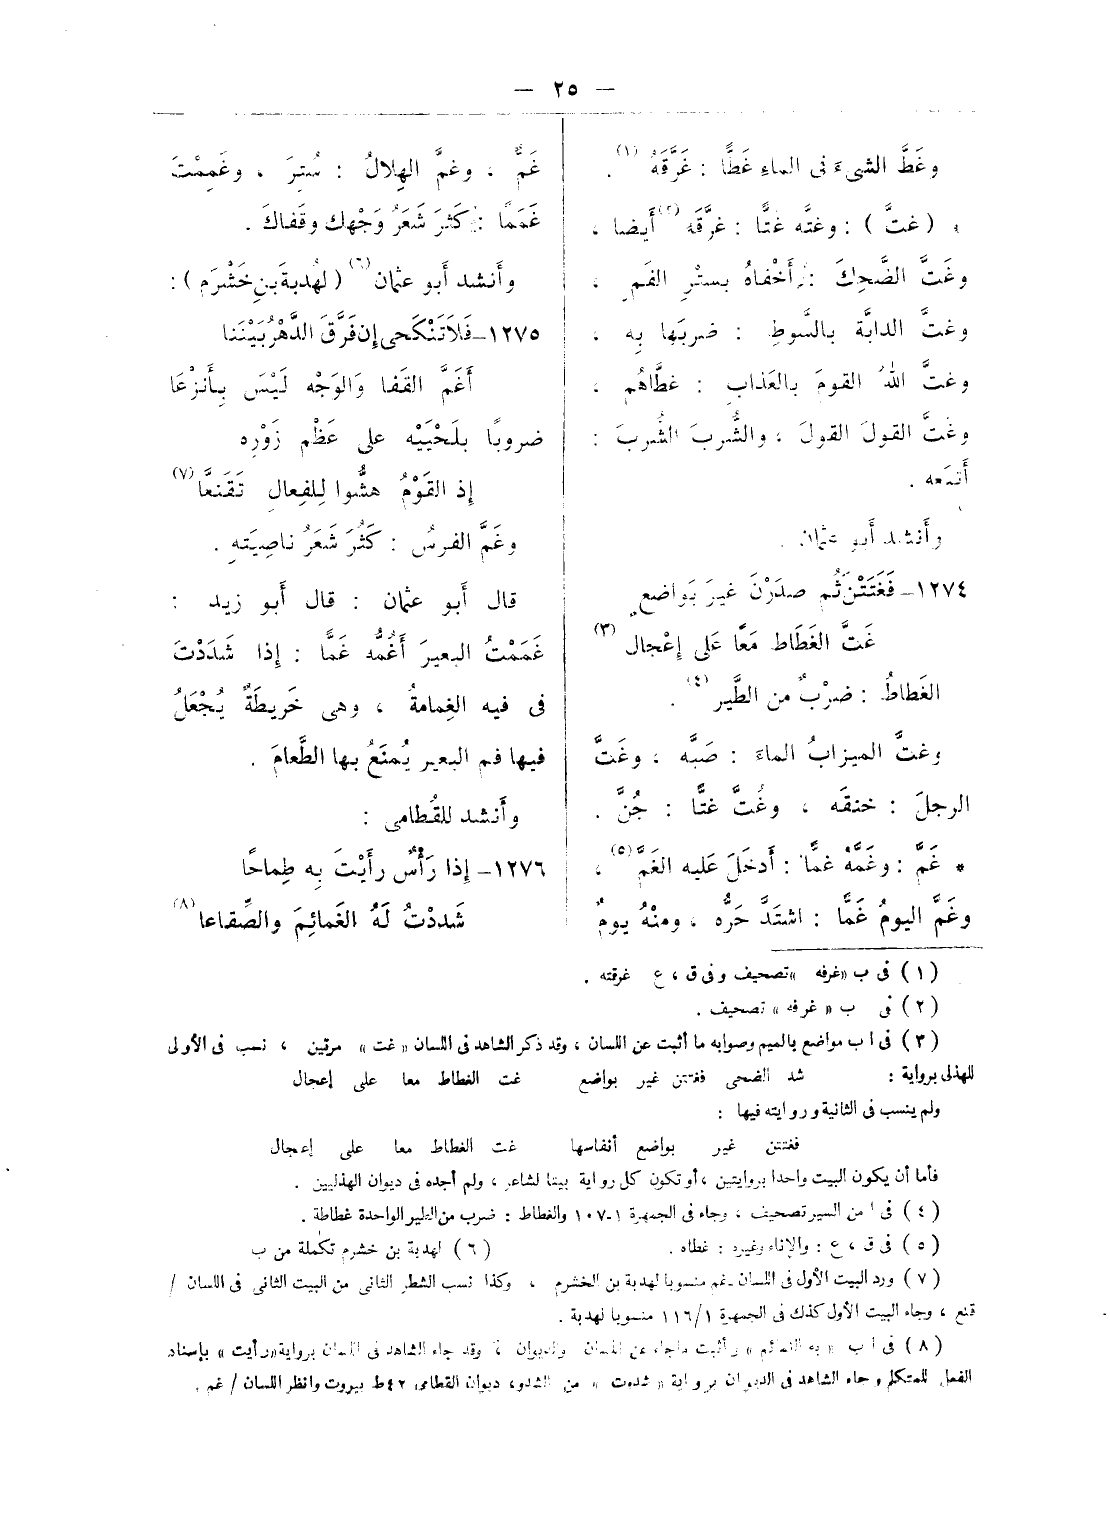 — ٢٥ —
وغَطَّ الشىءَ فى الماءِ غَطًّا : غَرَّقَهُ (١) .
* ( غتَّ ) : وغته غتًّا : غرَّقَه (٢) أَيضا ،
وغَتَّ الضَّحِكَ : أَخْفاهُ بسترِ الفَمِ ،
وغتَّ الدابَّة بالسَّوطِ : ضربَها بِه ،
وغتَّ اللهُ القومَ بالعَذابِ : غطَّاهُم ،
وغَتَّ القولَ القولَ ، والشُّربَ الشُّربَ :
أَتبَعه .
وأَنشد أَبو عثمان .
١٢٧٤ــ فَغَتَتْنَ ثُم صدَرْنَ غيرَ بَواضعٍ
غَتَّ الغَطَاط مَعًا عَلى إعْجال (٣)
الغَطاطُ : ضرْبٌ من الطَّير (٤) .
وغتَّ الميزابُ الماءَ : صَبَّه ، وغَتَّ
الرجلَ : خنقَه ، وغُتَّ غتًّا : جُنَّ .
* غَمَّ : وغمَّهُ غمًّا : أَدخَلَ عَليه الغَمَّ (٥) ،
وغَمَّ اليومُ غَمًّا : اشتدَّ حَرُّه ، ومنْهُ يومٌ
غَمٌّ ، وغمَّ الهِلالُ : سُتِرَ ، وغَمِمْتَ
غَمَمًا : كَثرَ شَعَرُ وَجْهك وقفَاكَ .
وأَنشد أَبو عثمان (٦) ( لهُدبةَ بنِ خَشْرَم ) :
١٢٧٥ــ فَلاَ تَنْكَحى إن فَرَّقَ الدَّهْرُ بَيْنَنا
أَغَمَّ القَفا وَالوَجْه لَيْسَ بِأَنزعَا
ضروبًا بلَحْيَيْه على عَظْم زَوْرِه
إذ القَوْمُ هشُّوا لِلفِعالِ تَقَنعَّا (٧)
وغَمَّ الفرسُ : كَثُرَ شَعَرُ ناصِيَتهِ .
قال أَبو عثمان : قال أَبو زيد :
غَمَمْتُ البعيرَ أَغُمُّه غَمًّا : إذا شَدَدْتَ
فى فيه الغِمامةُ ، وهى خَريطَةٌ يُجْعَلُ
فيها فم البعير يُمنَعُ بها الطَّعامَ .
وأَنشد للقُطامى :
١٢٧٦ــ إذا رَأْسٌ رأَيْتَ بِه طِماحًا
شَددْتُ لَهُ الغَمائِمَ والصِّقاعا (٨)
(١) فى ب «غرفه» تصحيف وفى ق ، ع غرقته .
(٢) فى ب « غرفه » تصحيف .
(٣) فى ا ب مواضع بالميم وصوابه ما أثبت عن اللسان ، وقد ذكر الشاهد فى اللسان « غت » مرتين ، نسب فى الأولى
للهذلى برواية : شد الضحى فغتتن غير بواضع غت الغطاط معا على إعجال
ولم ينسب فى الثانية وروايته فيها :
فغتتن غير بواضع أنفاسها غت الغطاط معا على إعجال
فأما أن يكون البيت واحدا بروايتين ، أو تكون كل رواية بيتا لشاعر ، ولم أجده فى ديوان الهذليين .
(٤) فى ا من السير تصحيف ، وجاء فى الجمهرة ١-١٠٧ والغطاط : ضرب من الطير الواحدة غطاطة .
(٥) فى ق ، ع : والإناء وغيره : غطاه . (٦) لهدبة بن خشرم تكملة من ب
(٧) ورد البيت الأول فى اللسان ـ غم منسوبا لهدبة بن الخشرم ، وكذا نسب الشطر الثانى من البيت الثانى فى اللسان /
قنع ، وجاء البيت الأول كذلك فى الجمهرة ١١٦/١ منسوبا لهدبة .
(٨) فى ا ب « به الغمائم » وأثبت ماجاء عن اللسان والديوان ، وقد جاء الشاهد فى اللسان برواية «رأيت » بإسناد
الفعل للمتكلم وجاء الشاهد فى الديوان برواية « شدوت » من الشدو، ديوان القطامى ٤٢ ط بيروت وانظر اللسان / غم .